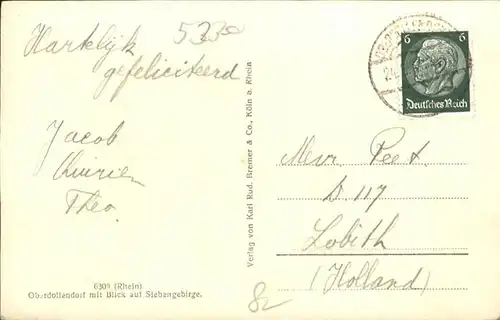 5330
Hartelijk
gefeliciteerd
Jacob
Quirien
Theo.
6309 (Rhein)
Oberdollendorf mit Blick auf Siebengebirge.
Verlag von Karl Rud. Bremer & Co., Köln a. Rhein
6 6
Deutsches Reich
Mevr. Peet.
D. 117
Lobith
(Holland)